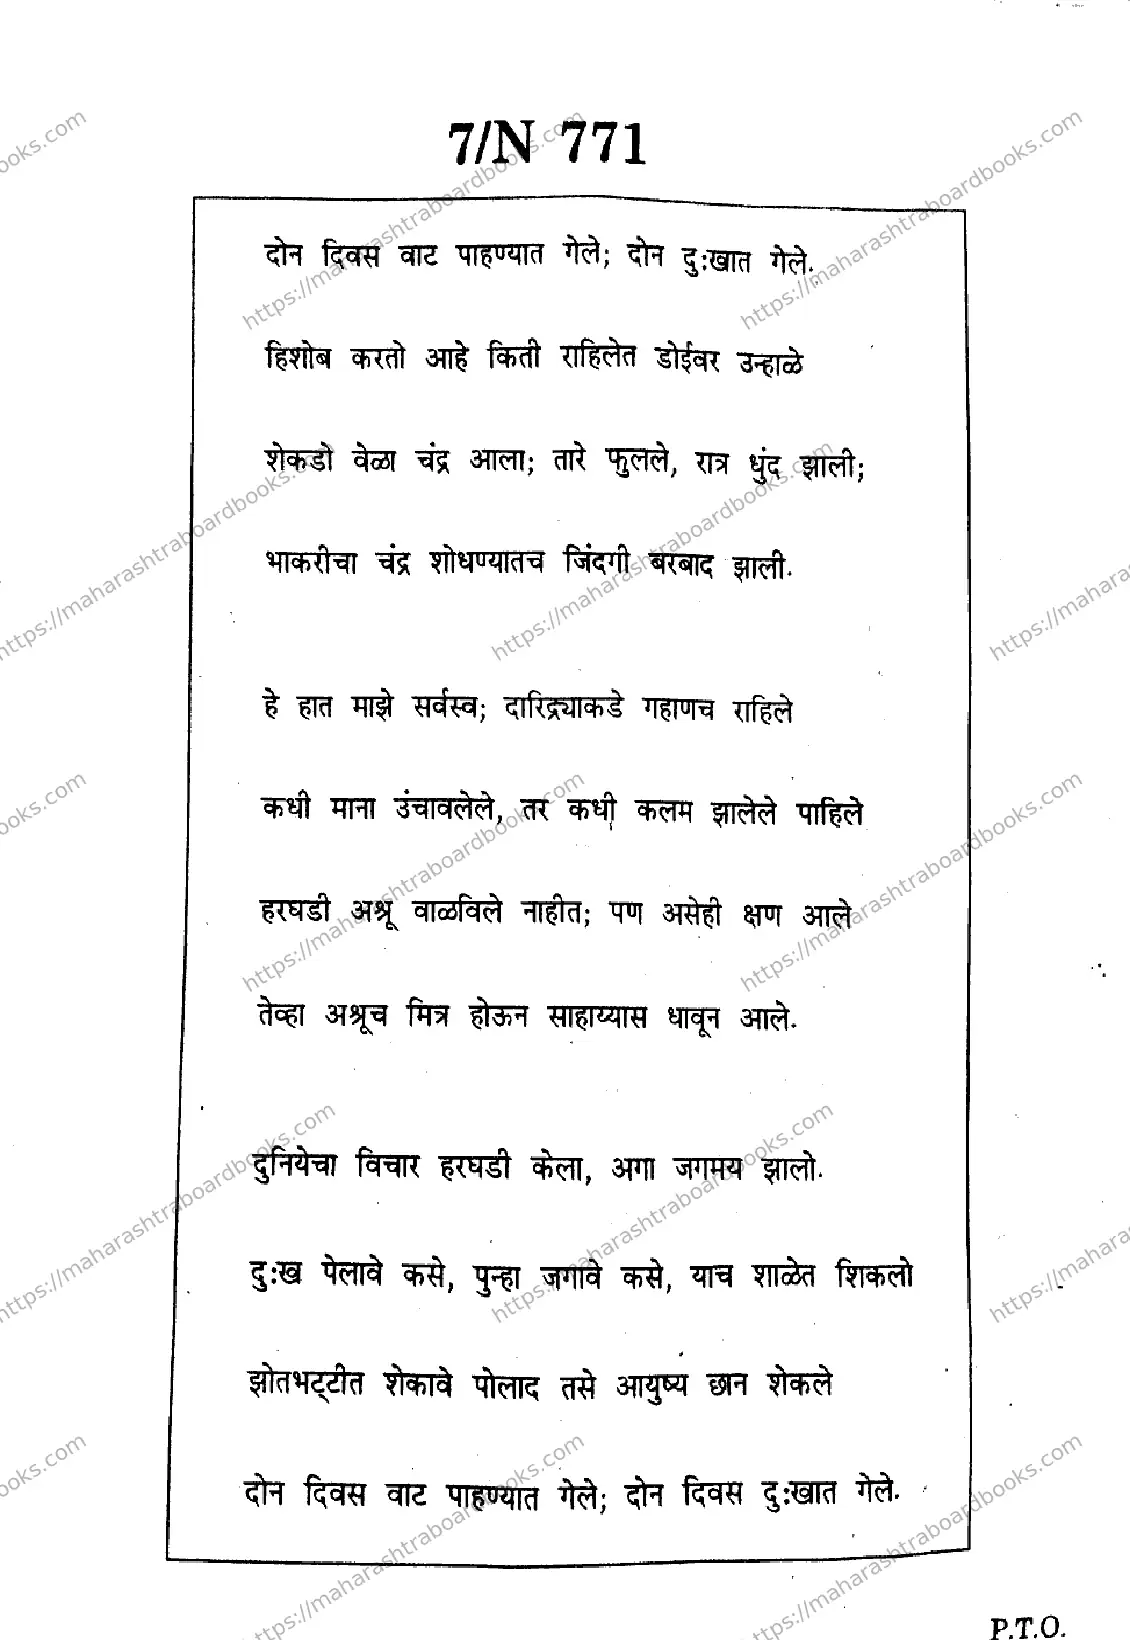 7/N 771
दोन दिवस वाट पाहण्यात गेले; दोन दुःखात गेले.
हिशोब करतो आहे किती राहिलेत डोईवर उन्हाळे
शेकडो वेळा चंद्र आला; तारे फुलले, रात्र धुंद झाली;
भाकरीचा चंद्र शोधण्यातच जिंदगी बरबाद झाली.
हे हात माझे सर्वस्व; दारिद्र्याकडे गहाणच राहिले
कधी माना उंचावलेले, तर कधी कलम झालेले पाहिले
हरघडी अश्रू वाळविले नाहीत; पण असेही क्षण आले
तेव्हा अश्रूच मित्र होऊन साहाय्यास धावून आले.
दुनियेचा विचार हरघडी केला, अगा जगमय झालो.
दुःख पेलावे कसे, पुन्हा जगावे कसे, याच शाळेत शिकलो
झोतभट्टीत शेकावे पोलाद तसे आयुष्य छान शेकले
दोन दिवस वाट पाहण्यात गेले; दोन दिवस दुःखात गेले.
P.T.O.
https://maharashtraboardbooks.com